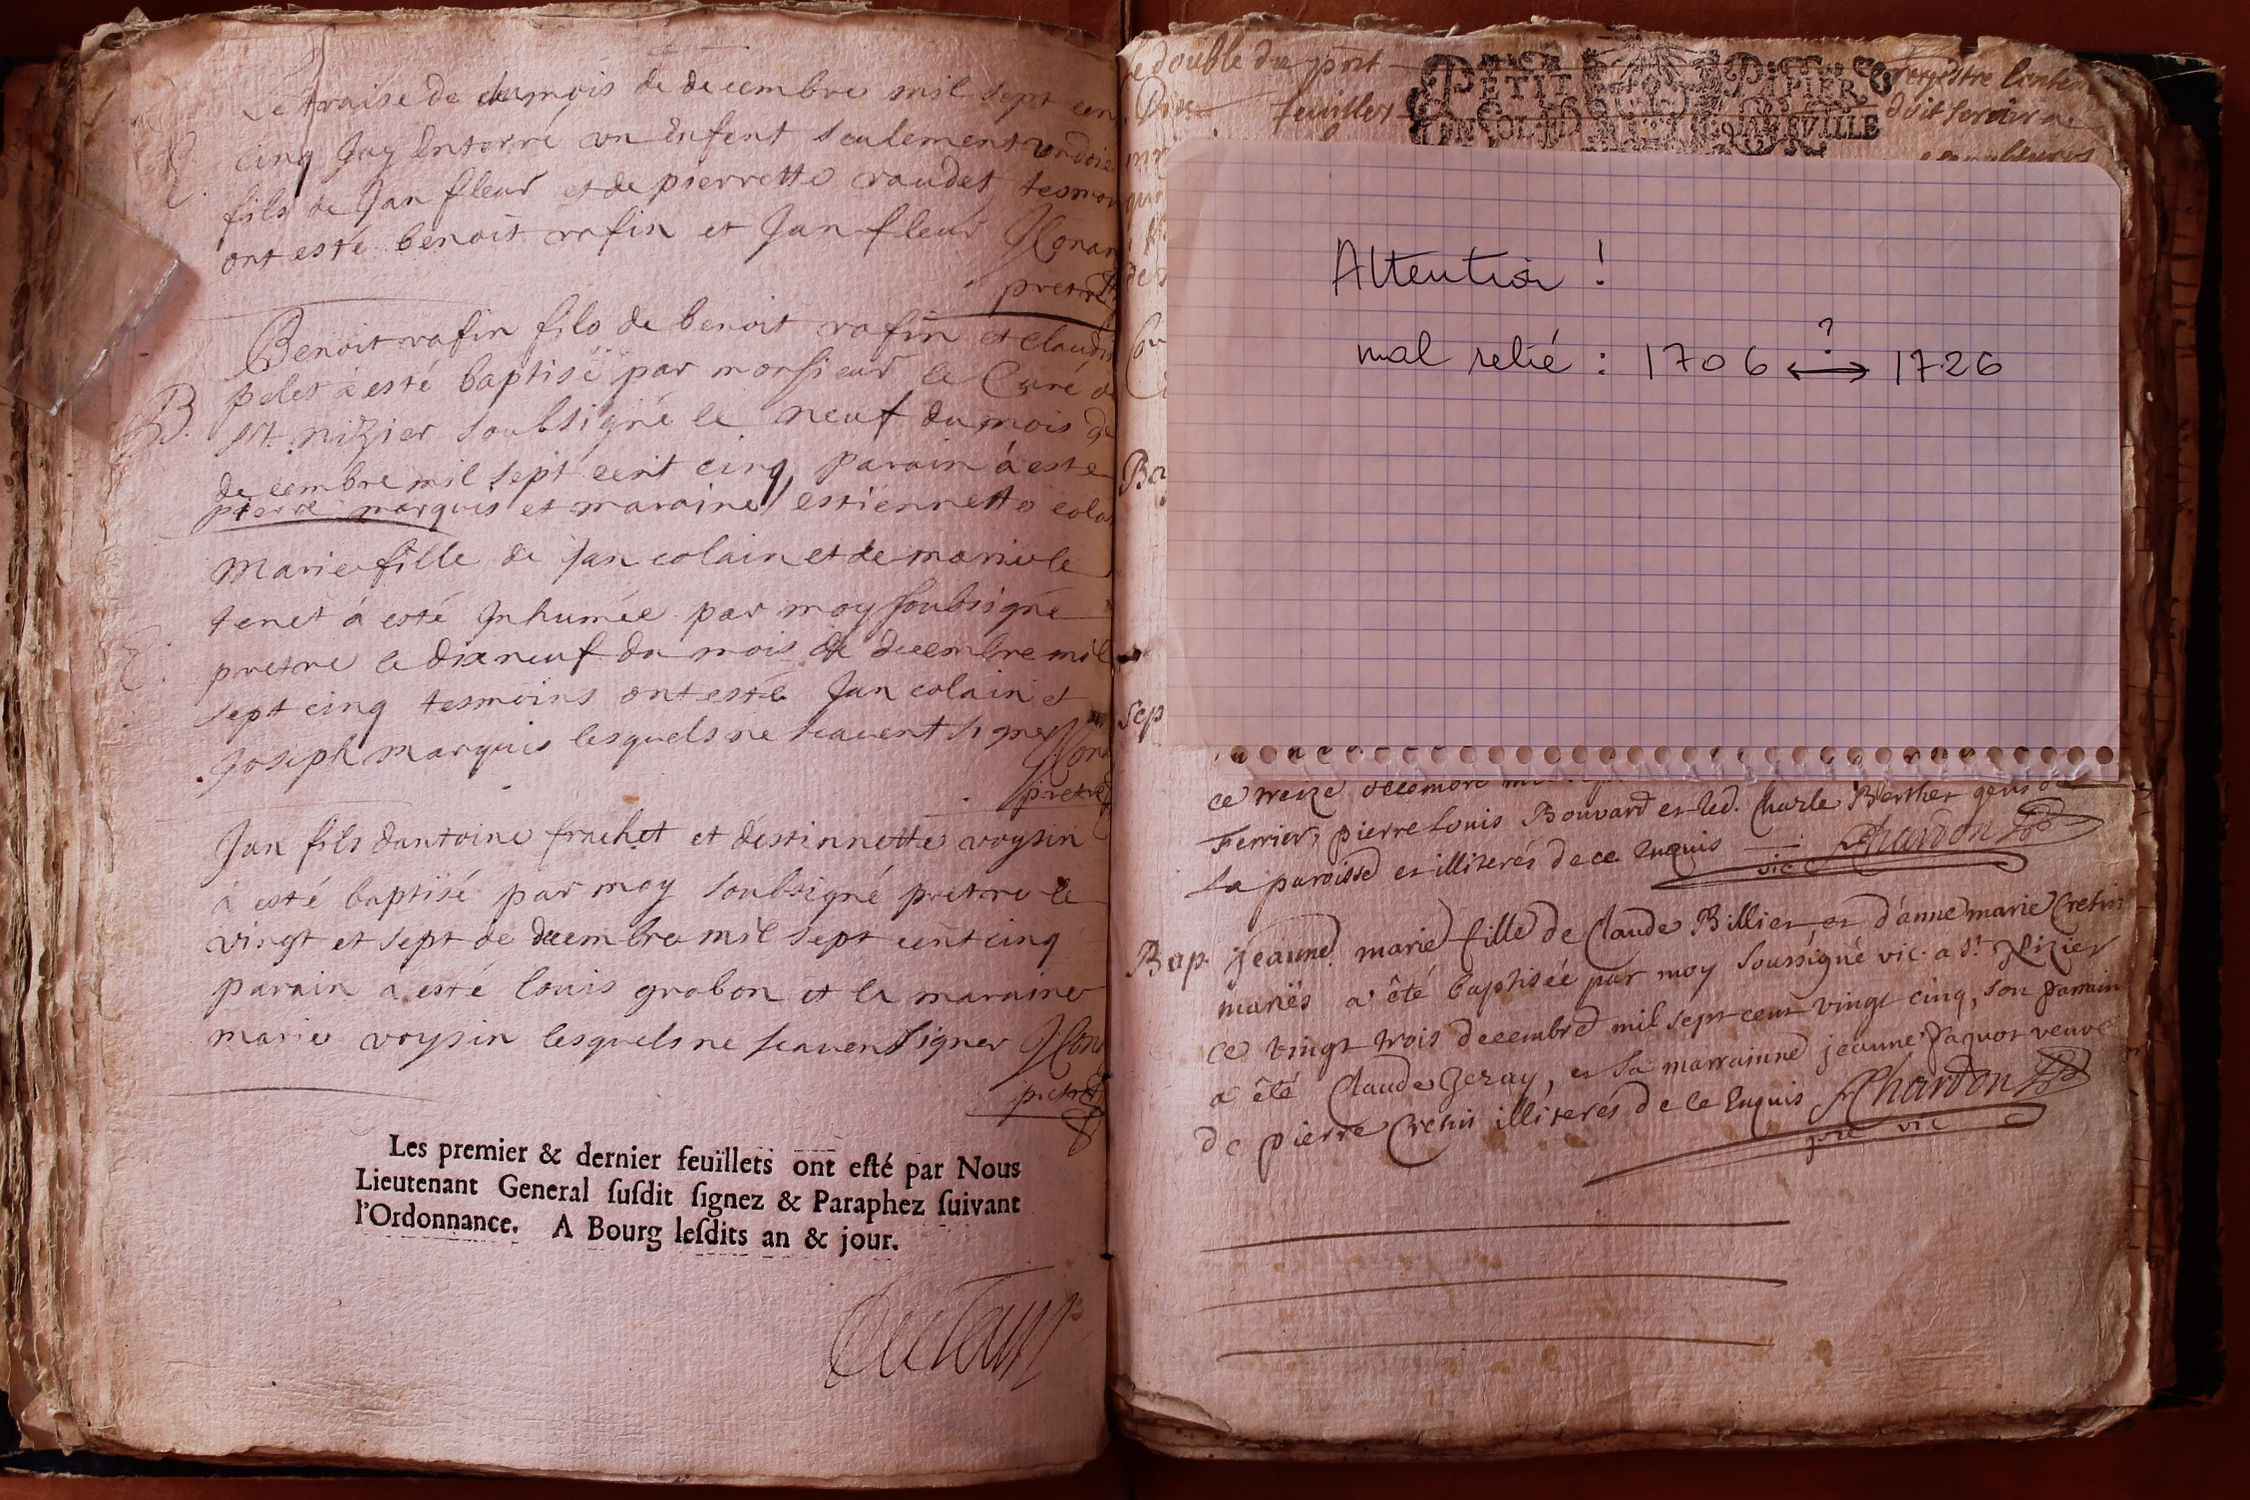 Le traise de du mois de decembre mil sept cen
cinq Jay Enterré un Enfent seulement ondoié
fils de Jan fleur et de pierrette raudet tesmoi
ont esté benoit rafin et Jan fleur
pretre
Benoit rafin fils de benoit rafin et claudi
pelet à esté baptisé par monsieur le Curé de
B. St. nizier soubsigné le neuf du mois de
decembre mil sept cent cinq parain à esté
pierre marquis et maraine estiennette cola
Marie fille de Jan colain et de marie le
tenet à esté Inhumée par moy soubsigné
pretre le dixneuf du mois de decembre mil
sept cinq tesmoins ont esté Jan colain et
Joseph marquis lesquels ne scavent signer
pretre
Jan fils dantoine frachet et destinnette voysin
à esté baptisé par moy soubsigné pretre le
vingt et sept de decembre mil sept cent cinq
parain a esté louis grabon et la maraine
marie voysin lesquels ne scavent signer
pretre
Les premier & dernier feuillets ont esté par Nous
Lieutenant General susdit signez & Paraphez suivant
l'Ordonnance. A Bourg lesdits an & jour.
le double du pnt registre
feuillet PETIT PAPIER doit servir
Attention !
mal relié : 1706 ?⟷ 1726
Ba
Sep
ce treize decembre
Ferrier, pierre Louis Bouvard et led. Charle Berthet gens de
la paroisse et illiterés de ce Enquis Chardon
vic
Bap. jeanne marie fille de Claude Billiet, et d'anne marie Cretin
mariés a été baptisée par moy soussigné vic. a St. Nizier
ce vingt trois decembre mil sept cent vingt cinq, son parrain
a été Claude Jeray, et sa marrainne jeanne Paquot veuve
de pierre Cretin illiterés de ce Enquis Chardon
pre vic